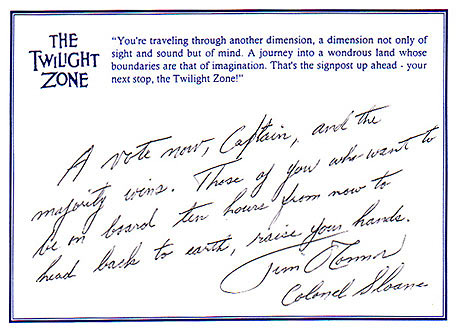 THE
TWILIGHT
ZONE
"You're traveling through another dimension, a dimension not only of
sight and sound but of mind. A journey into a wondrous land whose
boundaries are that of imagination. That's the signpost up ahead - your
next stop, the Twilight Zone!"
A vote now, Captain, and the
majority wins. Those of you who want to
be on board ten hours from now to
head back to earth, raise your hands.
Jim O'Connor
Colonel Sloane